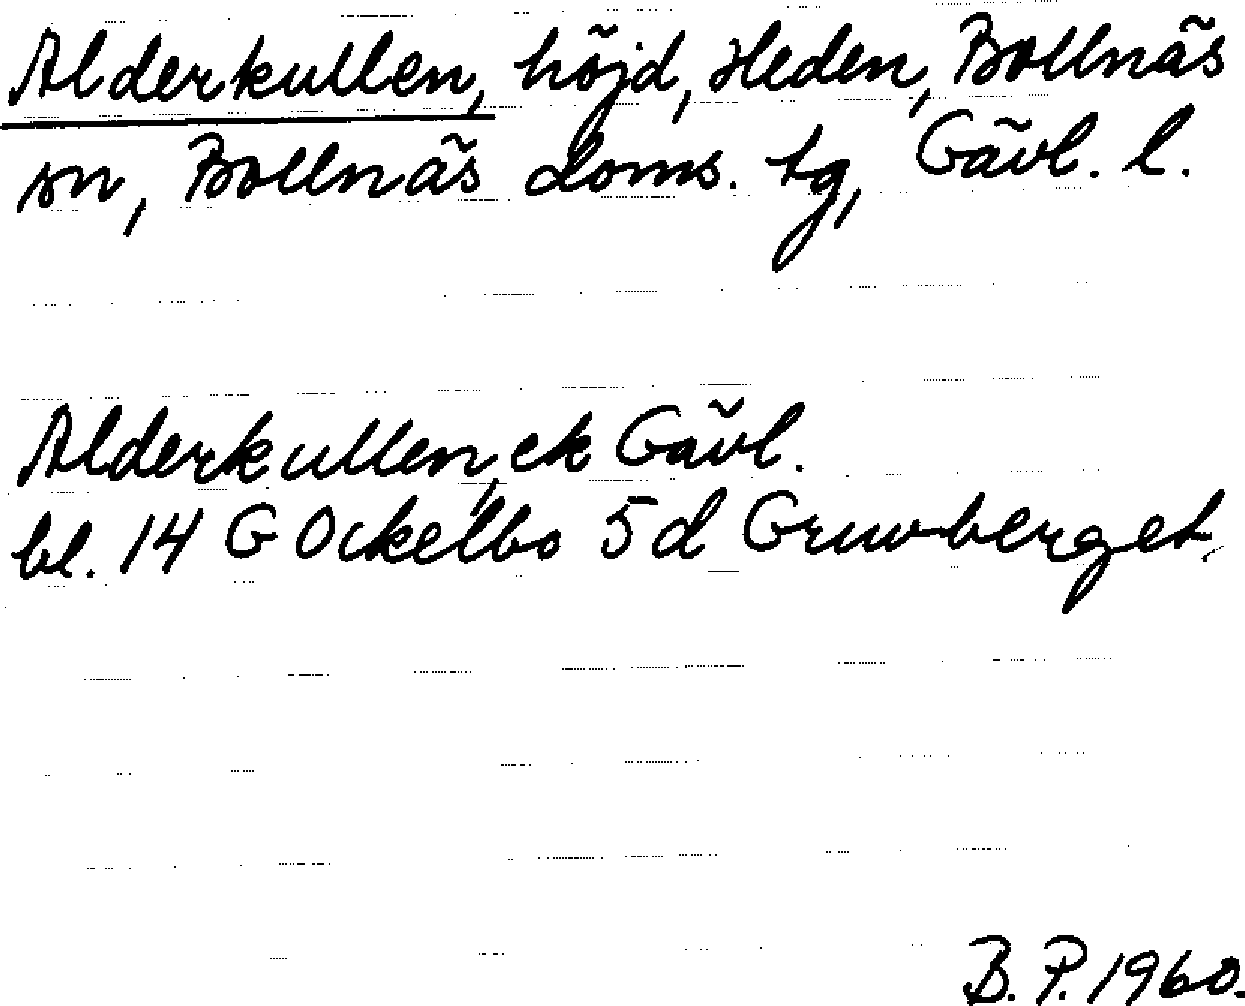 Alderkullen, höjd, Heden, Bollnäs
sn, Bollnäs doms. tg, Gävl. l.
Alderkullen, ek Gävl.
bl. 14 G Ockelbo 5 d Gruvberget.
B. P. 1960.